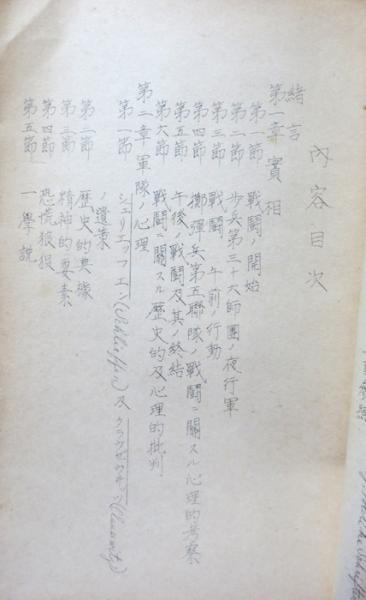 內容目次
緒言
第一章 實相
第一節 戰鬪ノ開始
第二節 步兵第三十六師團ノ夜行軍
第三節 戰鬪 午前ノ行動
第四節 擲彈兵第五聯隊ノ戰鬪ニ關スル心理的考察
第五節 午後ノ戰鬪及其ノ終結
第六節 戰鬪ニ關スル歷史的及心理的批判
第二章 軍隊ノ心理
第一節 シュリエッフエン(Schlieffen)及クラウゼウヰッツ
ノ遺策
第二節 歷史的典據
第三節 精神的要素
第四節 恐慌狼狽
第五節 一學說